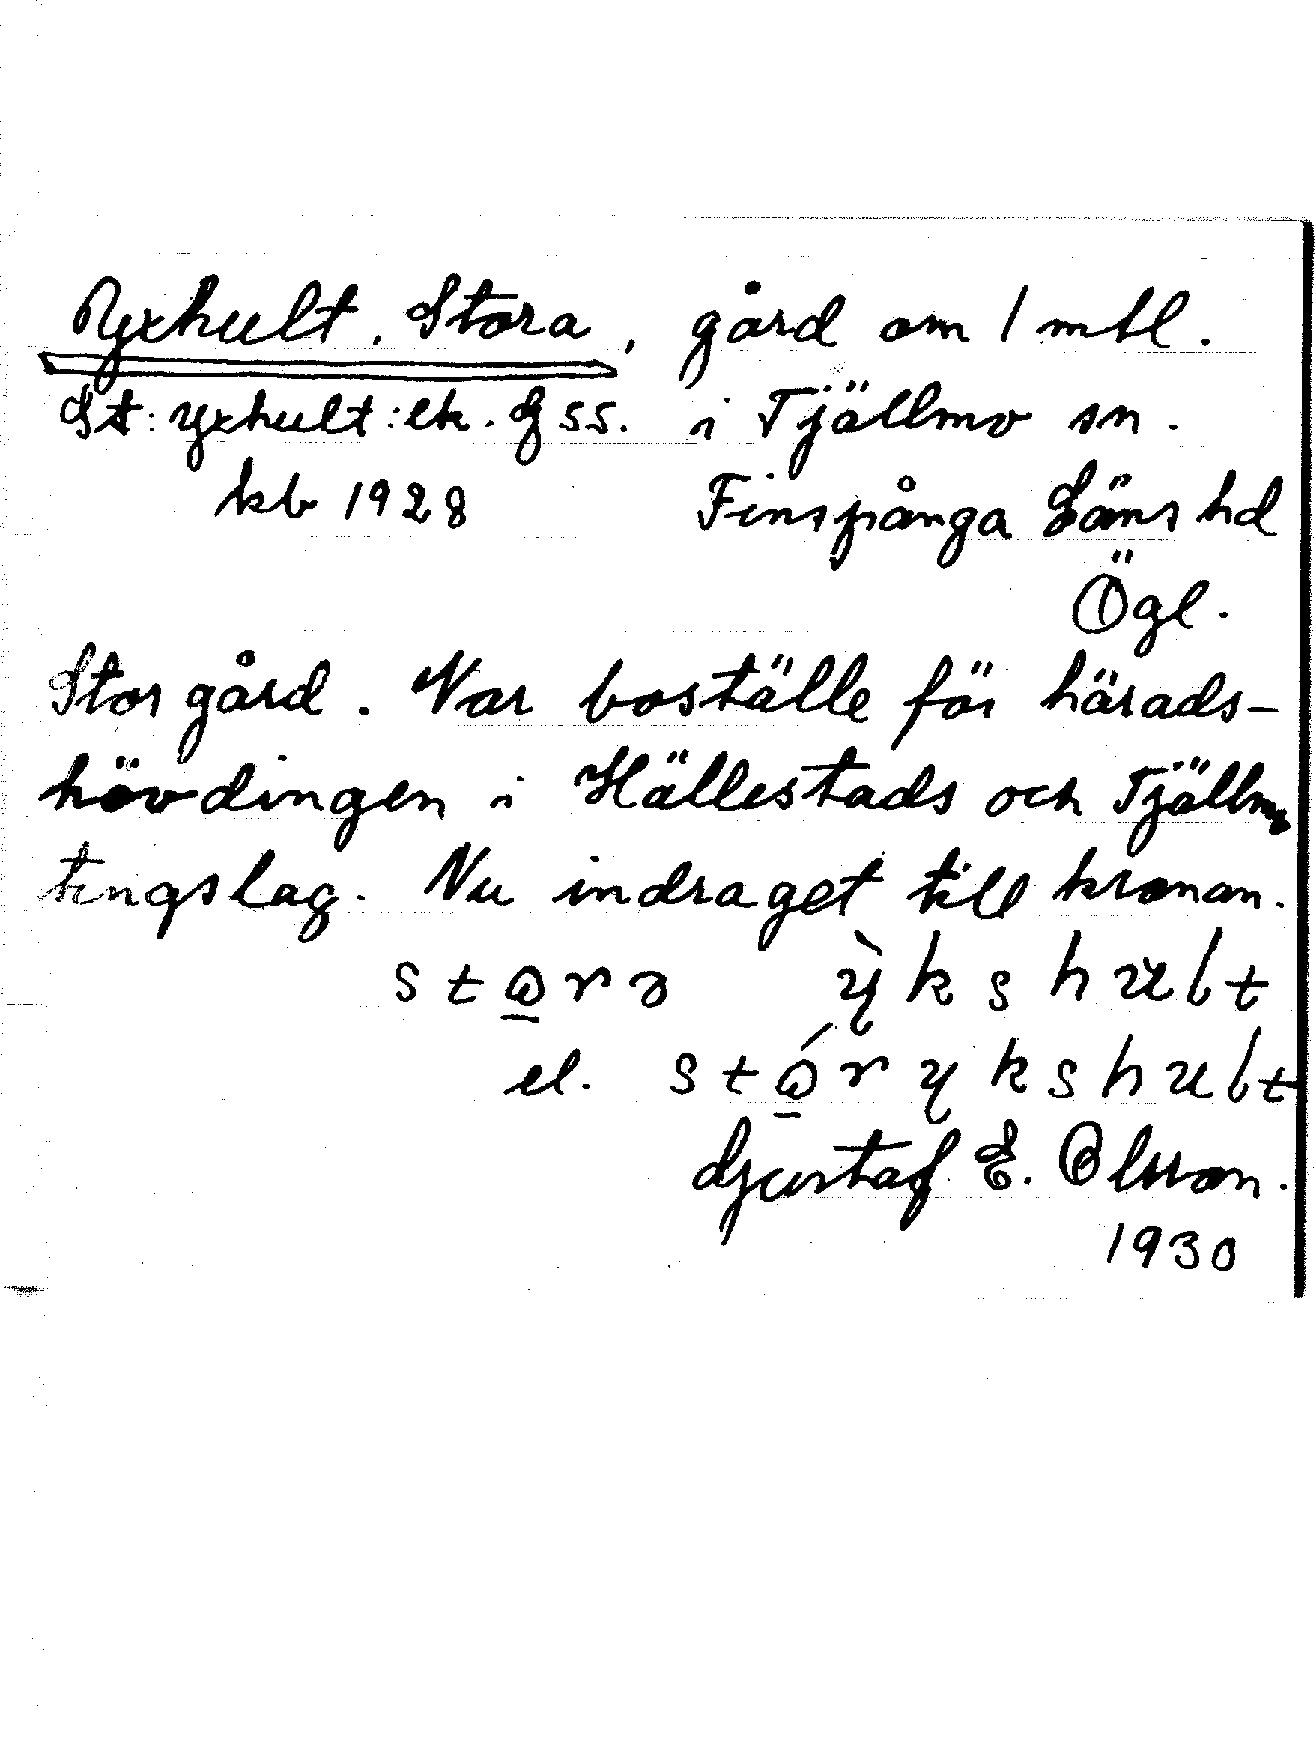 Yxhult, Stora, gård om 1 mtl.
St: yxhult: ek. Q 55. i Tjällmo sn.
kb 1928 Finspånga Läns hd
Ögl.
Stor gård. Var boställe för härads-
hövdingen i Hällestads och Tjällmo
tingslag. Nu indraget till kronan.
stωrə ỳkshult
el. stώrykshult
Gustaf E. Olsson.
1930